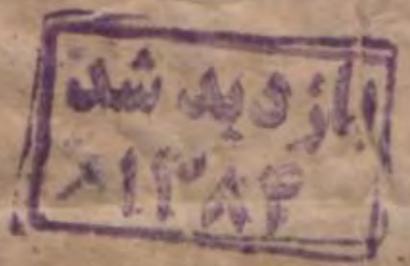 بازدید شد
۱۳۸۴